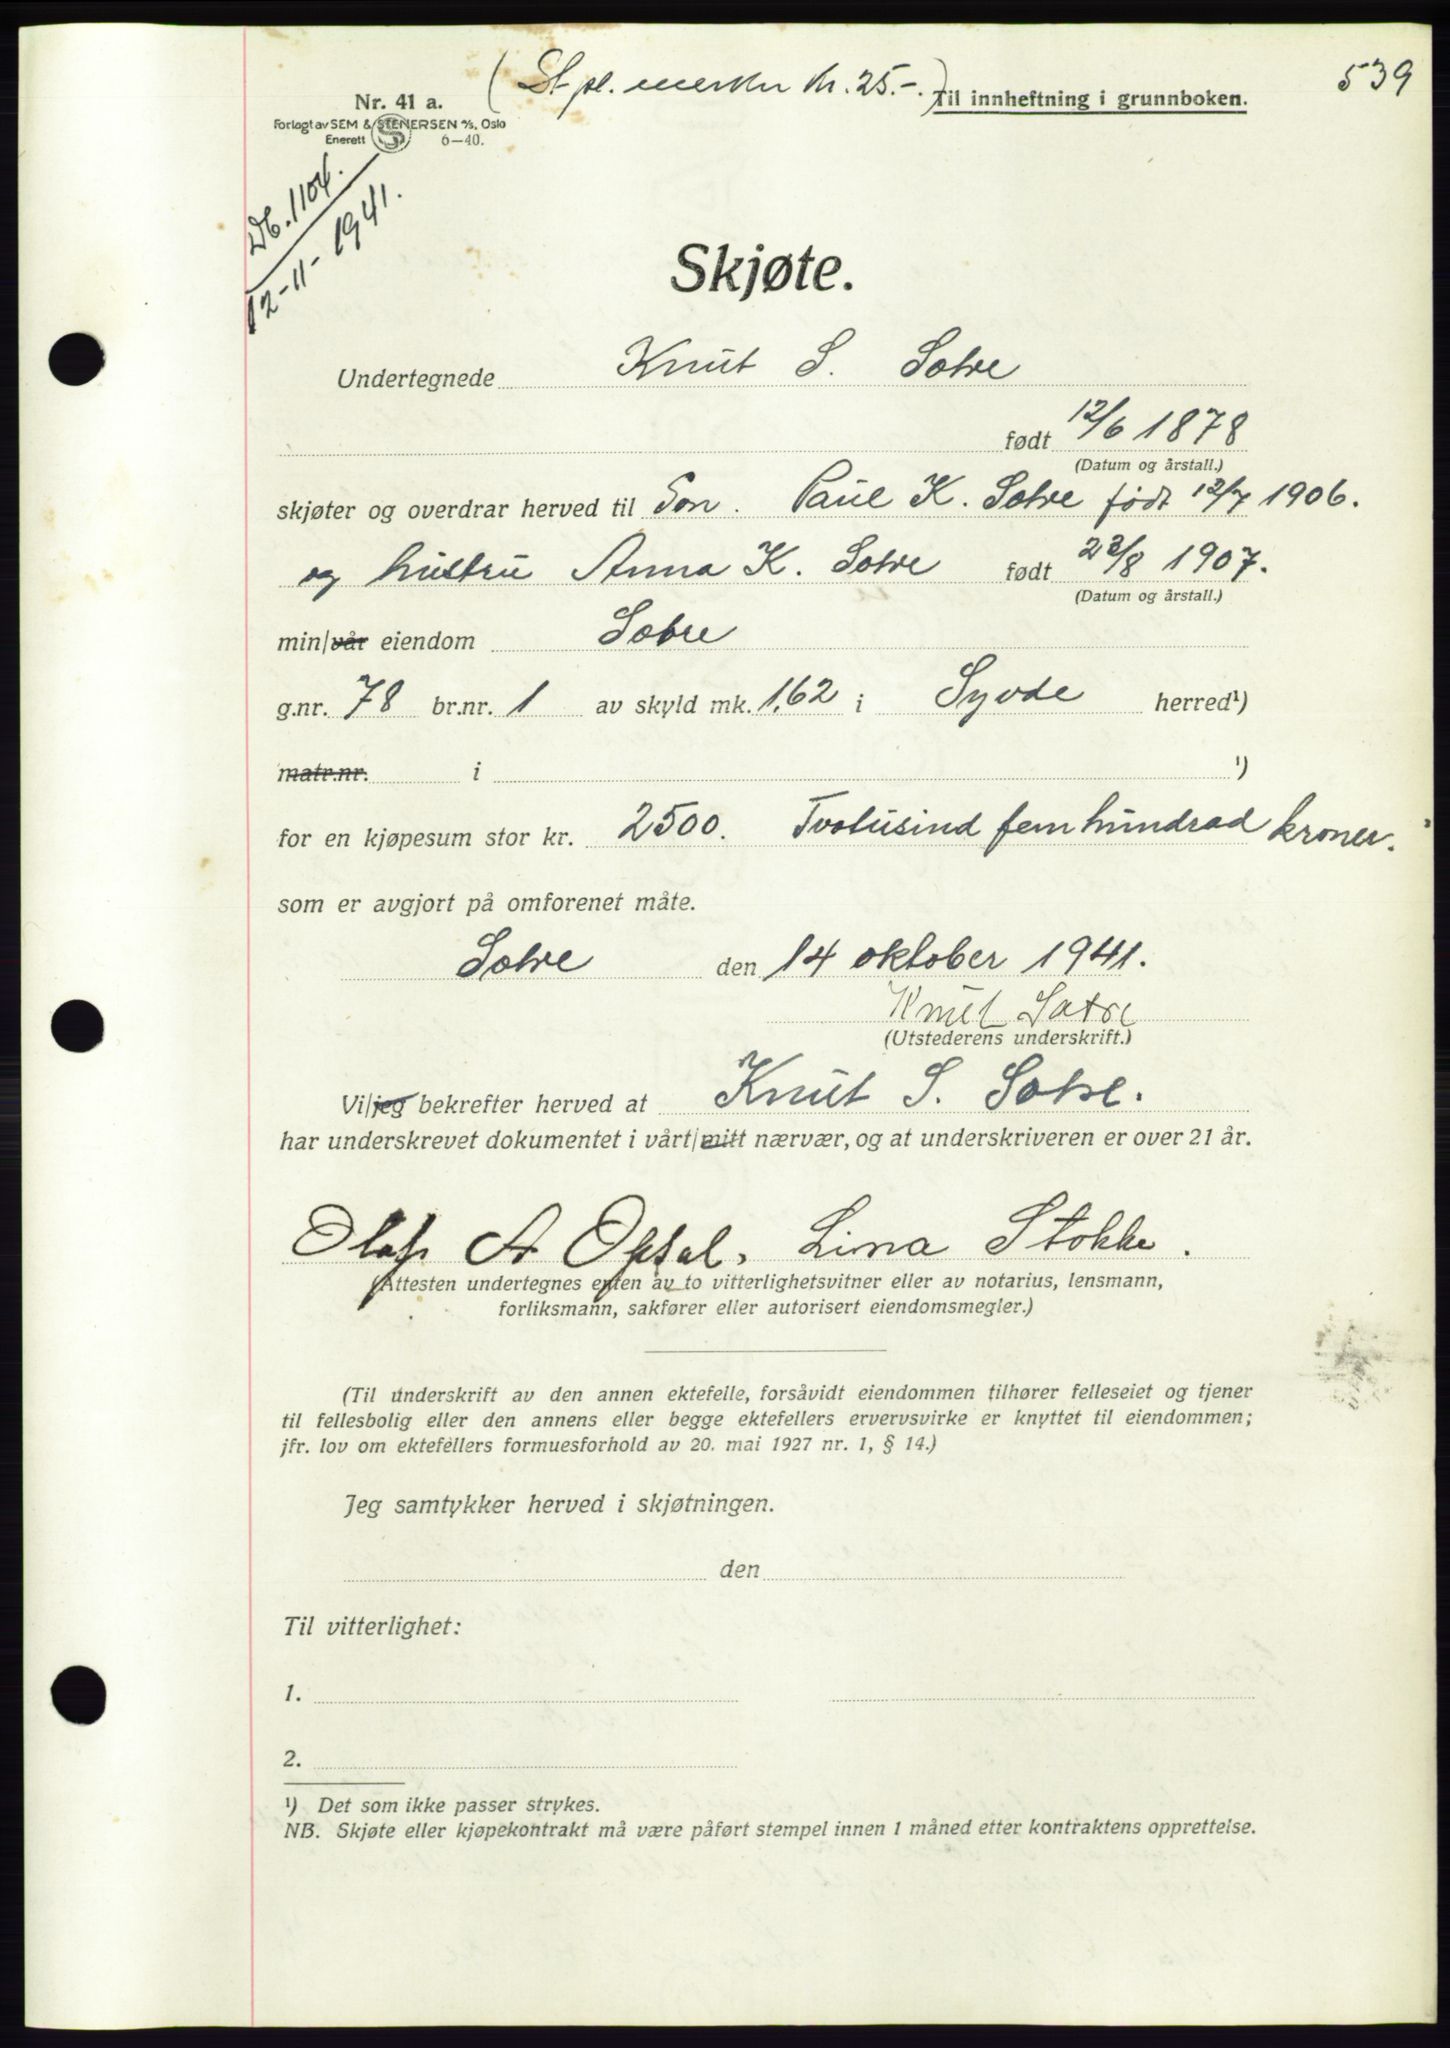 539
(St.pl. merker kr. 25.-.)
Nr. 41 a.
Til innheftning i grunnboken.
Forlagt av SEM & STENERSEN A/S, Oslo
Enerett S 6-40.
Db. 1104.
12-11-1941.
Skjøte.
Undertegnede Knut S. Sætre
født 12/6 1878
(Datum og årstall.)
skjøter og overdrar herved til Son. Paul K. Sætre født 12/7 1906.
og hustru Anna K. Sætre født 23/8 1907.
(Datum og årstall.)
min/vår eiendom Sætre
g.nr. 78 br.nr. 1 av skyld mk. 1,62 i Syvde herred¹)
matr.nr. i ¹)
for en kjøpesum stor kr. 2500. Tvotusind fem hundrad kroner.
som er avgjort på omforenet måte.
Sætre den 14 oktober 1941.
Knut Sætre
(Utstederens underskrift.)
Vi/jeg bekrefter herved at Knut S. Sætre.
har underskrevet dokumentet i vårt/mitt nærvær, og at underskriveren er over 21 år.
Olaf A Opsal, Lina Stokke.
(Attesten undertegnes enten av to vitterlighetsvitner eller av notarius, lensmann,
forliksmann, sakfører eller autorisert eiendomsmegler.)
(Til underskrift av den annen ektefelle, forsåvidt eiendommen tilhører felleseiet og tjener
til fellesbolig eller den annens eller begge ektefellers ervervsvirke er knyttet til eiendommen;
jfr. lov om ektefellers formuesforhold av 20. mai 1927 nr. 1, § 14.)
Jeg samtykker herved i skjøtningen.
den
Til vitterlighet:
1.
2.
¹) Det som ikke passer strykes.
NB. Skjøte eller kjøpekontrakt må være påført stempel innen 1 måned etter kontraktens opprettelse.